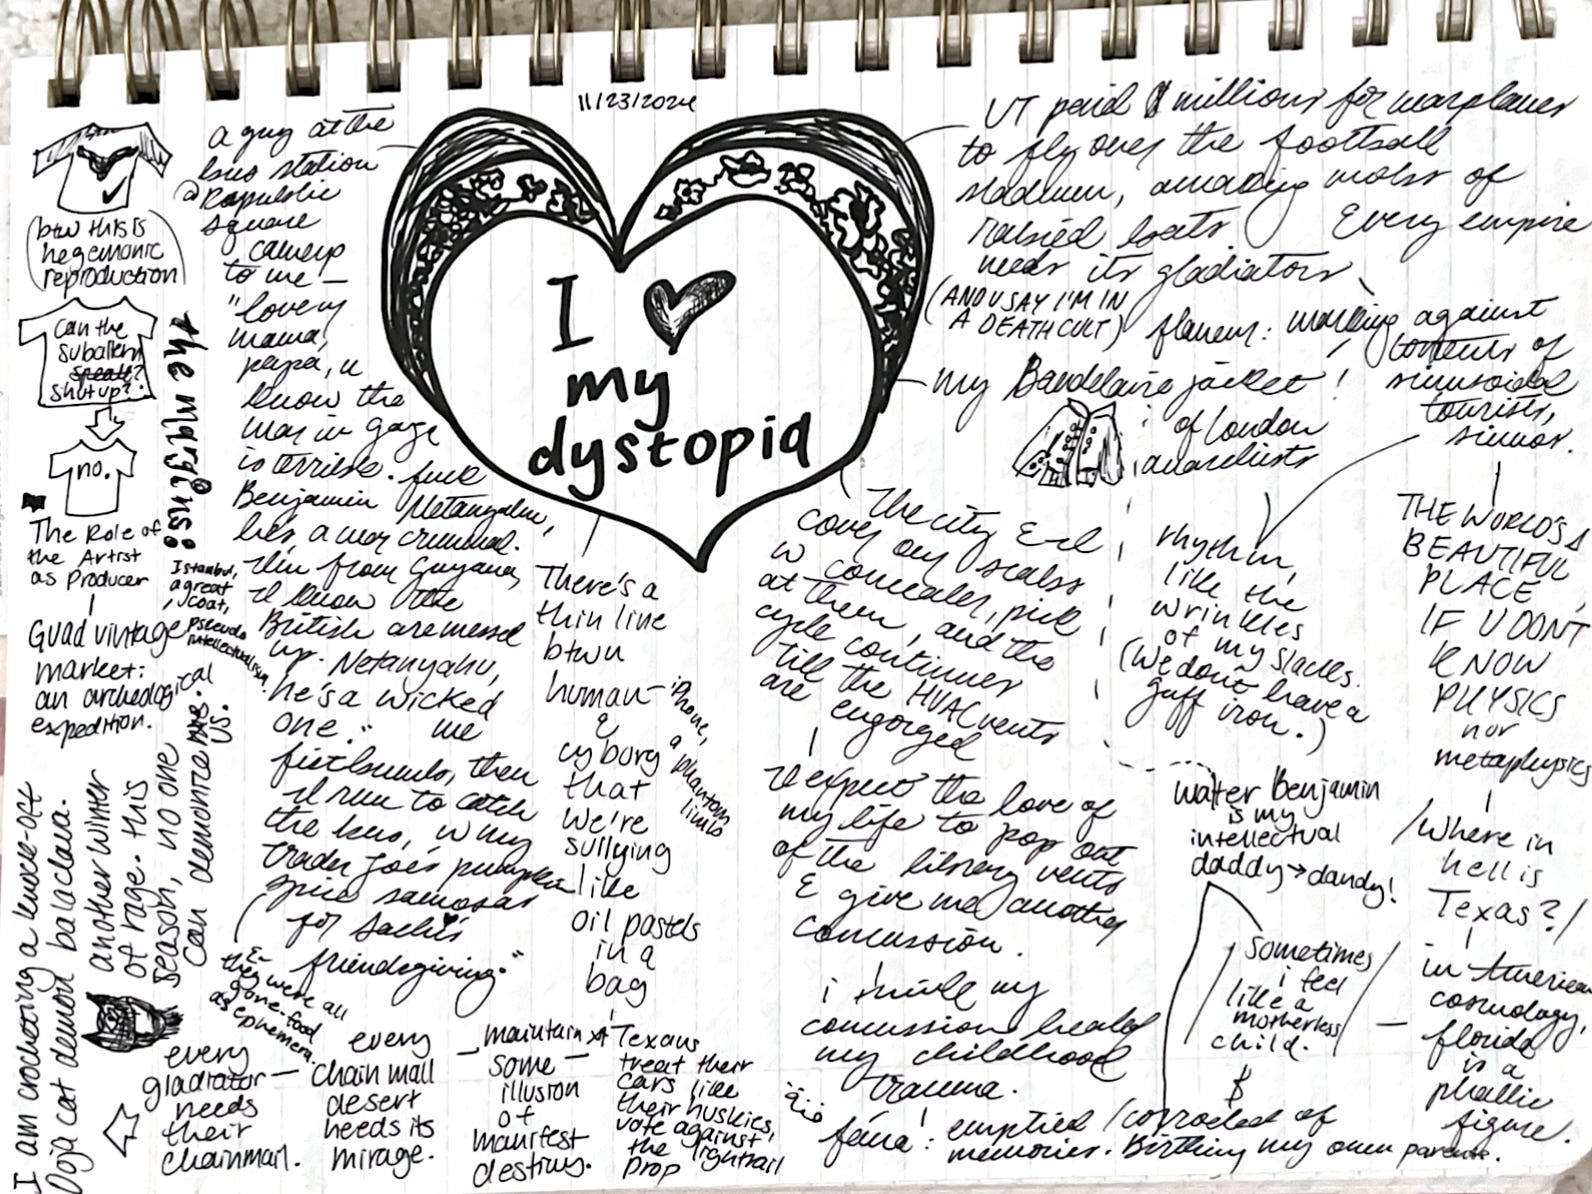 11/23/2024
I ♥
my
dystopia
a guy at the
bus station
@ Republic
square
came up
to me —
"lovers
mama,
papa, u
know the
war in gaza
is terrible. fuck
Benjamin Netanyahu,
he's a war criminal.
I'm from Guyana,
I know the
British are messed
up. Netanyahu,
he's a wicked
one." we
fistbump, then
I run to catch
the bus, w my
trader joe's pumpkin
spice samosas
for
friendsgiving."
&
they were all
gone. food
as ephemera.
UT paid $ millions for warplanes
to fly over the football
stadium, amazing mobs of
Every empire
needs its gladiators
(AND U SAY I'M IN
A DEATH CULT)
flaneur: walking against
contents of
sinusoidal
tourists,
my Baudelaire jacket!
of London
anarchists
rhythm,
like the
wrinkles
of my slacks.
(We don't have a
iron.)
THE WORLD'S A
BEAUTIFUL
PLACE,
IF U DON'T
KNOW
PHYSICS
nor
metaphysics
/Where in
hell is
Texas?/
in American
cosmology,
florida
is a
phallic
figure.
The city &
cover my scabs
w concealer, pick
at them, and the
cycle continues
till the HVAC vents
are engorged
I expect the love of
my life to pop out
of the library vents
& give me another
concussion.
i think my
concussion healed
my childhood
trauma.
fana: emptied / corroded of
memories. Birthing my own parents.
walter Benjamin
is my
intellectual
daddy→dandy!
sometimes
i feel
like a
motherless
child.
$
There's a
thin line
btwn
human
&
cyborg
that
we're
sullying
like
oil pastels
in a
bag
iPhone,
a phantom
limb
Texans
treat their
cars like
their huskies,
vote against
the lightrail
prop
maintain
some
illusion
of
manifest
destiny.
every
chain mall
desert
needs its
mirage.
every
gladiator
needs
their
chainmail.
(btw this is
hegemonic
reproduction)
can the
subaltern
speak?
shut up?
no.
The Role of
the Artist
as Producer
Guad vintage
market:
an archeological
expedition.
the margins:
Istanbul,
a great
coat,
pseudo
intellectualism.
I am crocheting a knock-off
Doja cat demon balaclava.
another winter
of rage. this
season, no one
can demonitre me.
us.